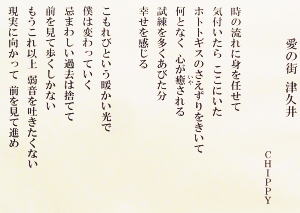 愛の街 津久井
CHIPPY
時の流れに身を任せて
気付いたら ここにいた
ホトトギスのさえずりをきいて
何となく 心が癒される
いや
試練を多くあびた分
幸せを感じる
こもれびという暖かい光で
僕は変わっていく
忌まわしい過去は捨てて
前を見て歩くしかない
もうこれ以上 弱音を吐きたくない
現実に向かって 前を見て進め